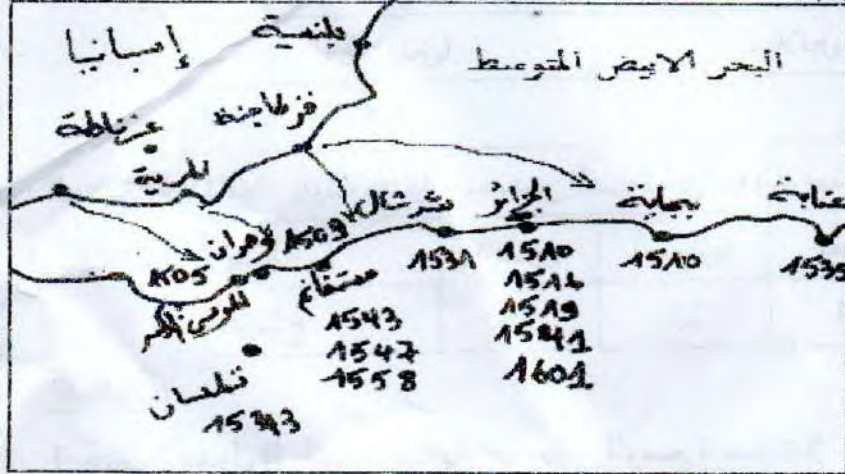 إسبانيا
بلنسية
البحر الابيض المتوسط
غرناطة
قرطاجنة
المرية
وهران
1509
شرشال
الجزائر
بجاية
عنابة
1505
المرسى الكبير
مستغانم
1531
1510
1516
1519
1541
1601
1510
1535
1543
1547
1558
تلمسان
1543